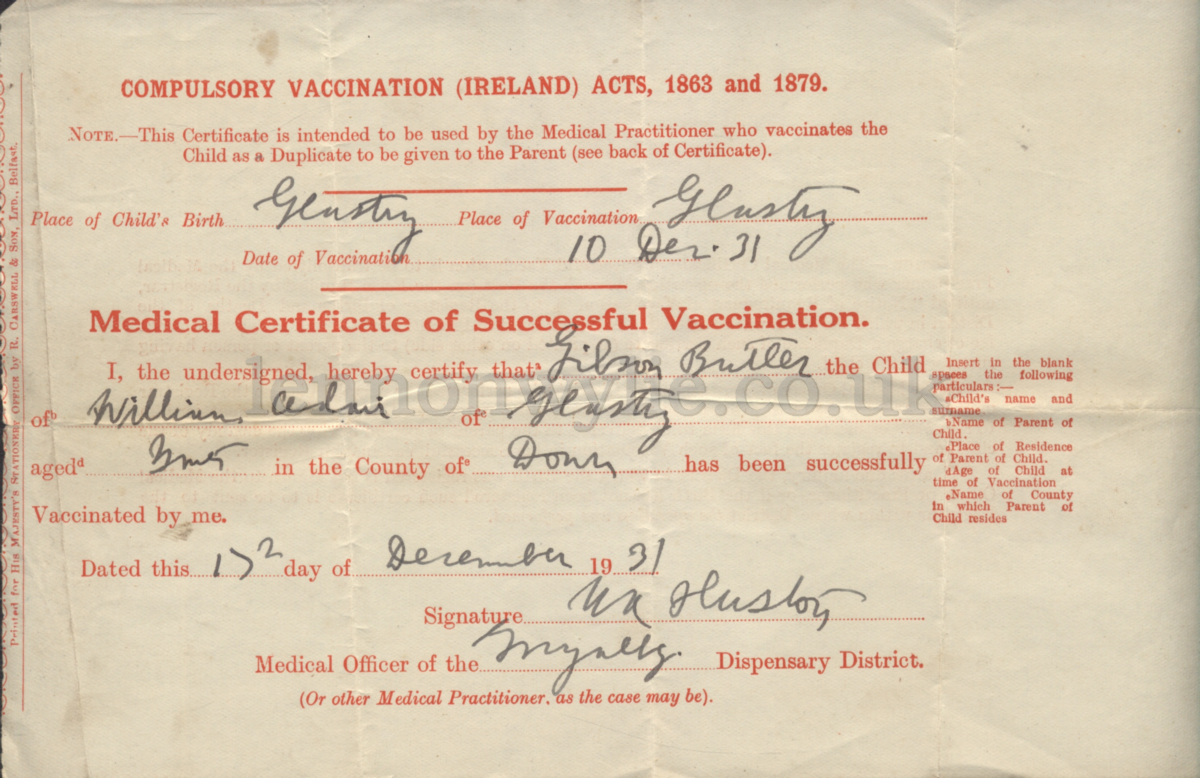 COMPULSORY VACCINATION (IRELAND) ACTS, 1863 and 1879.
NOTE.—This Certificate is intended to be used by the Medical Practitioner who vaccinates the
Child as a Duplicate to be given to the Parent (see back of Certificate).
Place of Child's Birth Glastry Place of Vaccination Glastry
Date of Vaccination 10 Dec. 31
Medical Certificate of Successful Vaccination.
I, the undersigned, hereby certify that a Gibson Butler the Child
of b William Adair of c Glastry
aged d in the County of e Down has been successfully
Vaccinated by me.
Dated this 17 day of December 1931
Signature
Medical Officer of the Dispensary District.
(Or other Medical Practitioner, as the case may be).
Insert in the blank
spaces the following
particulars:—
aChild's name and
surname.
bName of Parent of
Child.
cPlace of Residence
of Parent of Child.
dAge of Child at
time of Vaccination
eName of County
in which Parent of
Child resides
Printed for HIS MAJESTY'S STATIONERY OFFICE by R. CARSWELL & SON, LTD., Belfast.
lennonwylie.co.uk